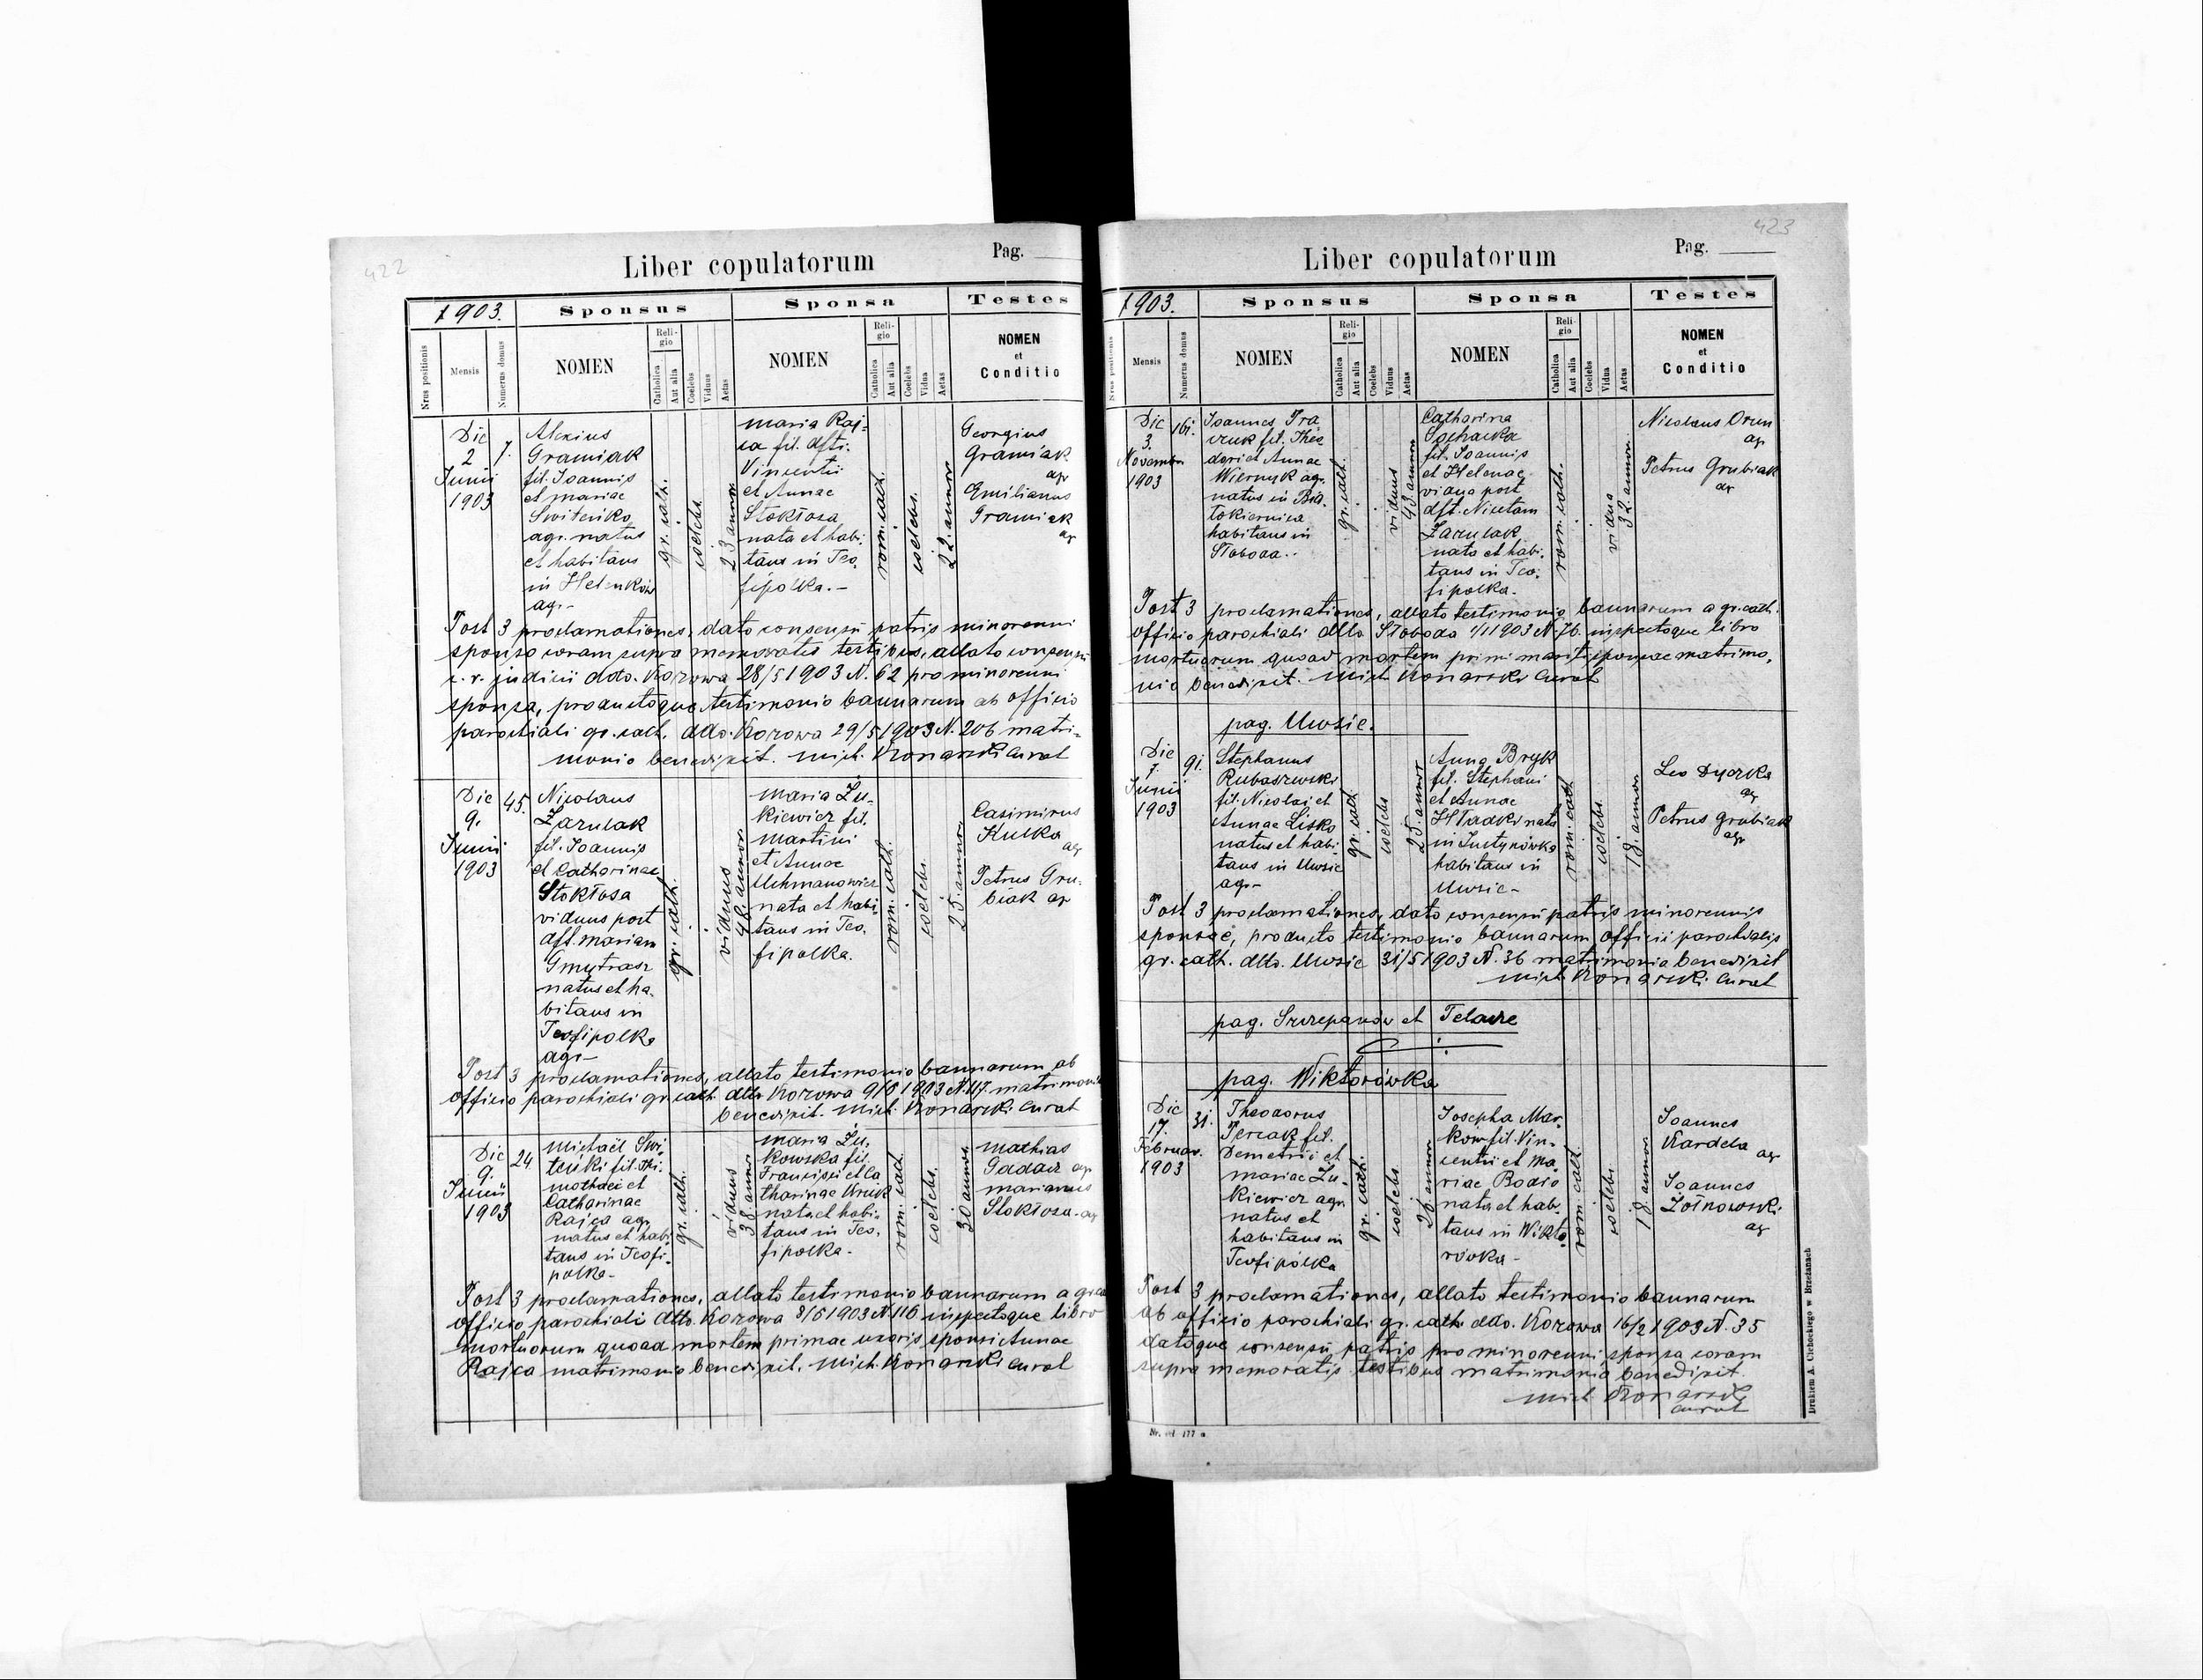 422
Liber copulatorum
Pag.
1903.
Sponsus
Sponsa
Testes
Nrus positionis
Mensis
Numerus domus
NOMEN
Religio
Catholica
Aut alia
Coelebs
Viduus
Aetas
NOMEN
Religio
Catholica
Aut alia
Coelebs
Vidua
Aetas
NOMEN
et
Conditio
Die
2
Junii
1903
7.
Alexius
Gramiak
fil. Joannis
et Mariae
agr. natus
et habitans
in Helenków
agr.
gr. cath.
coelebs.
23 annor.
Maria Raj-
ca fil. dfti.
Vincentii
et Annae
Stokłosa
nata et habi-
tans in Teo-
fipolka.-
rom. cath.
coelebs.
22. annor.
Georgius
Gramiak
agr
Emilianus
Gramiak
agr
Post 3 proclamationes, dato consensu patris minorenni
sponso coram supra memoratis testibus, allato consensu
c. r. judicii ddo. Kozowa 28/5 1903 N. 62 pro minorenni
sponsa, productoque testimonio bannorum ab officio
parochiali gr. cath. ddo. Kozowa 29/5 1903 N. 206 matri-
monio benedixit. Mich. Konarski Curat
Die
9.
Junii
1903
45.
Nicolaus
Zarulak
fil. Joannis
et Catharinae
Stokłosa
viduus post
dft. Mariam
natus et ha-
bitans in
Teofipolka
agr.-
gr. cath.
viduus
48. annor.
Maria Żu-
kiewicz fil.
Martini
et Annae
Uchmanowicz
nata et habi-
tans in Teo-
fipolka.
rom. cath.
coelebs.
25. annor.
Casimirus
Kulka
agr
Petrus Gru-
biak agr
Post 3 proclamationes, allato testimonio bannorum ab
officio parochiali gr. cath. ddo. Kozowa 9/6 1903 N. 117. matrimonio
benedixit. Mich. Konarski Curat
Die
9.
Junii
1903
24.
Michaël Swi-
teńki fil. Thi-
mothaei et
Catharinae
Rajca agr.
natus et habi-
tans in Teofi-
polka-
gr. cath.
viduus
38. annor.
Maria Żu-
kowska fil.
Francisci et Ca
tharinae Kruk
nata et habi-
tans in Teo-
fipolka-
rom. cath.
coelebs.
30 annor.
Mathias
Gadacz agr
Marianus
Stokłosa-agr
Post 3 proclamationes, allato testimonio bannorum a gr. ca
officio parochiali ddo. Kozowa 8/6 1903 N. 116 inspectoque libro
mortuorum quoad mortem primae uxoris sponsi Annae
Rajca matrimonio benedixit. Mich. Konarski Curat
423
Liber copulatorum
Pag.
1903.
Sponsus
Sponsa
Testes
Nrus positionis
Mensis
Numerus domus
NOMEN
Religio
Catholica
Aut alia
Coelebs
Viduus
Aetas
NOMEN
Religio
Catholica
Aut alia
Coelebs
Vidua
Aetas
NOMEN
et
Conditio
Die
3.
Novembr.
1903
161.
Joannes Tra
czuk fil. Theo
dori et Annae
Wiernyk agr.
natus in
habitans in
Słoboda.-
gr. cath.
viduus
43. annor.
Catharina
Sochacka
fil. Joannis
et Helenae
vidua post
dft. Nicetam
Zarulak
nata et habi-
tans in Teo-
fipolka-
rom. cath.
vidua
32. annor.
Nicolaus Orun
agr
Petrus Grubiak
agr
Post 3 proclamationes, allato testimonio bannorum a gr. cath.
officio parochiali ddo Słoboda 1/11 1903 N. 76. inspectoque libro
mortuorum quoad mortem primi mariti sponsae matrimo-
nio benedixit. Mich Konarski Curat
pag. Uwsie.
Die
7.
Junii
1903
91.
Stephanus
Rubaszewski
fil. Nicolai et
Annae Lisko
natus et habi
tans in Uwsie
agr-
gr. cath.
coelebs
25. annor
Anna Bryk
fil. Stephani
et Annae
Hładki nata
in Justynówka
habitans in
Uwsie-
rom. cath.
coelebs.
18. annor.
Leo Dyczka
agr
Petrus Grubiak
agr
Post 3 proclamationes, dato consensu patris minorennis
sponsae, producto testimonio bannorum officii parochialis
gr. cath. ddo. Uwsie 31/5 1903 N. 36 matrimonio benedixit
Mich. Konarski Curat
pag. Szczepanów et Telacze
pag. Wiktorówka
Die
17.
Februar.
1903
31.
Theodorus
fil.
Demetrii et
Mariae Żu-
kiewicz agr.
natus et
habitans in
Teofipolka
gr. cath.
coelebs
26. annor
Josepha Mar-
ków fil. Vin-
centii et Ma-
riae Bodio
nata et habi-
tans in Wikto-
rówka-
rom. cath.
coelebs
18. annor.
Joannes
Kardela
agr
Joannes
Żółnowski
agr
Post 3 proclamationes, allato testimonio bannorum
ab officio parochiali gr. cath. ddo. Kozowa 16/2 1903 N. 35
datoque consensu patris pro minorenni sponsa coram
supra memoratis testibus matrimonio benedixit.
Mich Konarski
Curat
Drukiem A. Cichockiego w Brzeżanach
177 a